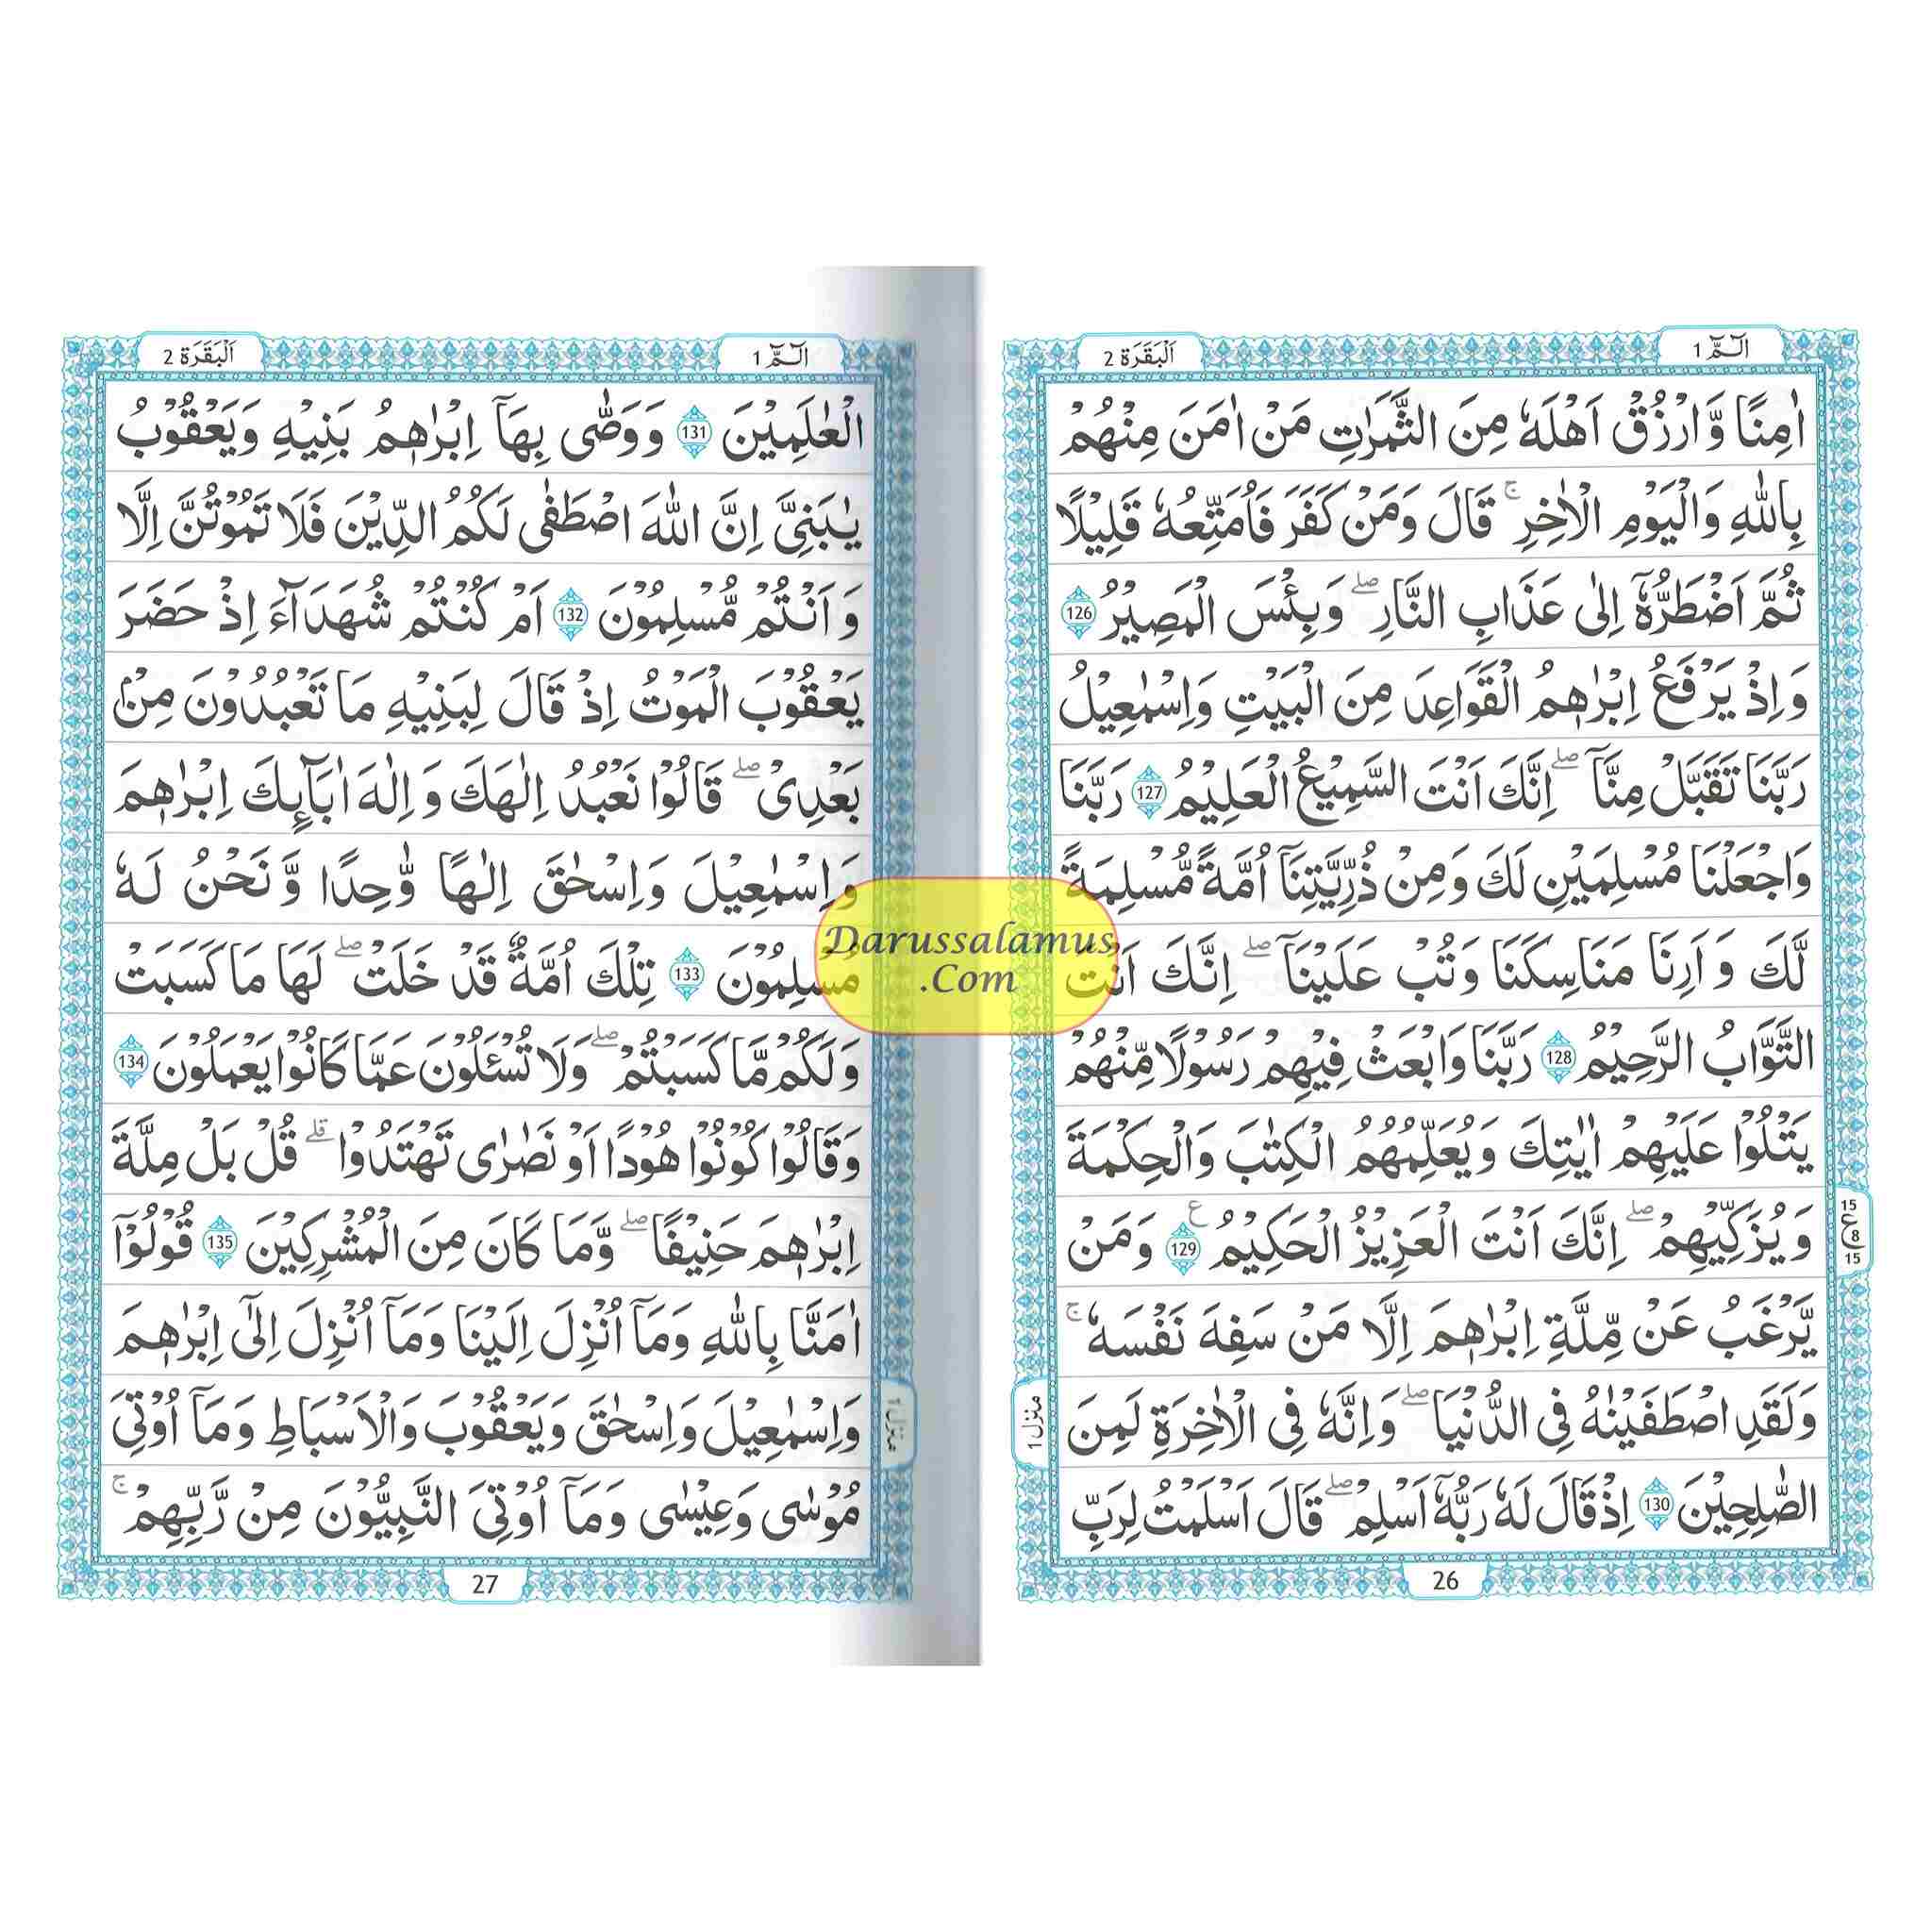 الٓمّٓ 1
اَلْبَقَرَة 2
اٰمِنًا وَّارْزُقْ اَهْلَهٗ مِنَ الثَّمَرٰتِ مَنْ اٰمَنَ مِنْهُمْ
بِاللّٰهِ وَالْيَوْمِ الْاٰخِرِ ۚ قَالَ وَمَنْ كَفَرَ فَاُمَتِّعُهٗ قَلِيْلًا
ثُمَّ اَضْطَرُّهٗٓ اِلٰى عَذَابِ النَّارِ ۖ وَبِئْسَ الْمَصِيْرُ 126
وَاِذْ يَرْفَعُ اِبْرٰهٖمُ الْقَوَاعِدَ مِنَ الْبَيْتِ وَاِسْمٰعِيْلُ
رَبَّنَا تَقَبَّلْ مِنَّا ۖ اِنَّكَ اَنْتَ السَّمِيْعُ الْعَلِيْمُ 127 رَبَّنَا
وَاجْعَلْنَا مُسْلِمَيْنِ لَكَ وَمِنْ ذُرِّيَّتِنَآ اُمَّةً مُّسْلِمَةً
لَّكَ وَاَرِنَا مَنَاسِكَنَا وَتُبْ عَلَيْنَا ۖ اِنَّكَ اَنْتَ
التَّوَّابُ الرَّحِيْمُ 128 رَبَّنَا وَابْعَثْ فِيْهِمْ رَسُوْلًا مِّنْهُمْ
يَتْلُوْا عَلَيْهِمْ اٰيٰتِكَ وَيُعَلِّمُهُمُ الْكِتٰبَ وَالْحِكْمَةَ
وَيُزَكِّيْهِمْ ۖ اِنَّكَ اَنْتَ الْعَزِيْزُ الْحَكِيْمُ 129 ع وَمَنْ
15 ع 8 15
يَّرْغَبُ عَنْ مِّلَّةِ اِبْرٰهٖمَ اِلَّا مَنْ سَفِهَ نَفْسَهٗ ۚ
وَلَقَدِ اصْطَفَيْنٰهُ فِى الدُّنْيَا ۖ وَاِنَّهٗ فِى الْاٰخِرَةِ لَمِنَ
منزل 1
الصّٰلِحِيْنَ 130 اِذْ قَالَ لَهٗ رَبُّهٗٓ اَسْلِمْ ۖ قَالَ اَسْلَمْتُ لِرَبِّ
26
الٓمّٓ 1
اَلْبَقَرَة 2
الْعٰلَمِيْنَ 131 وَوَصّٰى بِهَآ اِبْرٰهٖمُ بَنِيْهِ وَيَعْقُوْبُ
يٰبَنِىَّ اِنَّ اللّٰهَ اصْطَفٰى لَكُمُ الدِّيْنَ فَلَا تَمُوْتُنَّ اِلَّا
وَاَنْتُمْ مُّسْلِمُوْنَ 132 اَمْ كُنْتُمْ شُهَدَآءَ اِذْ حَضَرَ
يَعْقُوْبَ الْمَوْتُ اِذْ قَالَ لِبَنِيْهِ مَا تَعْبُدُوْنَ مِنْۢ
بَعْدِىْ ۖ قَالُوْا نَعْبُدُ اِلٰهَكَ وَاِلٰهَ اٰبَآئِكَ اِبْرٰهٖمَ
وَاِسْمٰعِيْلَ وَاِسْحٰقَ اِلٰهًا وّٰحِدًا وَّنَحْنُ لَهٗ
مُسْلِمُوْنَ 133 تِلْكَ اُمَّةٌ قَدْ خَلَتْ ۖ لَهَا مَا كَسَبَتْ
وَلَكُمْ مَّا كَسَبْتُمْ ۖ وَلَا تُسْئَلُوْنَ عَمَّا كَانُوْا يَعْمَلُوْنَ 134
وَقَالُوْا كُوْنُوْا هُوْدًا اَوْ نَصٰرٰى تَهْتَدُوْا ۗ قُلْ بَلْ مِلَّةَ
اِبْرٰهٖمَ حَنِيْفًا ۖ وَّمَا كَانَ مِنَ الْمُشْرِكِيْنَ 135 قُوْلُوْٓا
اٰمَنَّا بِاللّٰهِ وَمَآ اُنْزِلَ اِلَيْنَا وَمَآ اُنْزِلَ اِلٰٓى اِبْرٰهٖمَ
وَاِسْمٰعِيْلَ وَاِسْحٰقَ وَيَعْقُوْبَ وَالْاَسْبَاطِ وَمَآ اُوْتِىَ
منزل 1
مُوْسٰى وَعِيْسٰى وَمَآ اُوْتِىَ النَّبِيُّوْنَ مِنْ رَّبِّهِمْ ۚ
27
Darussalamus
.Com